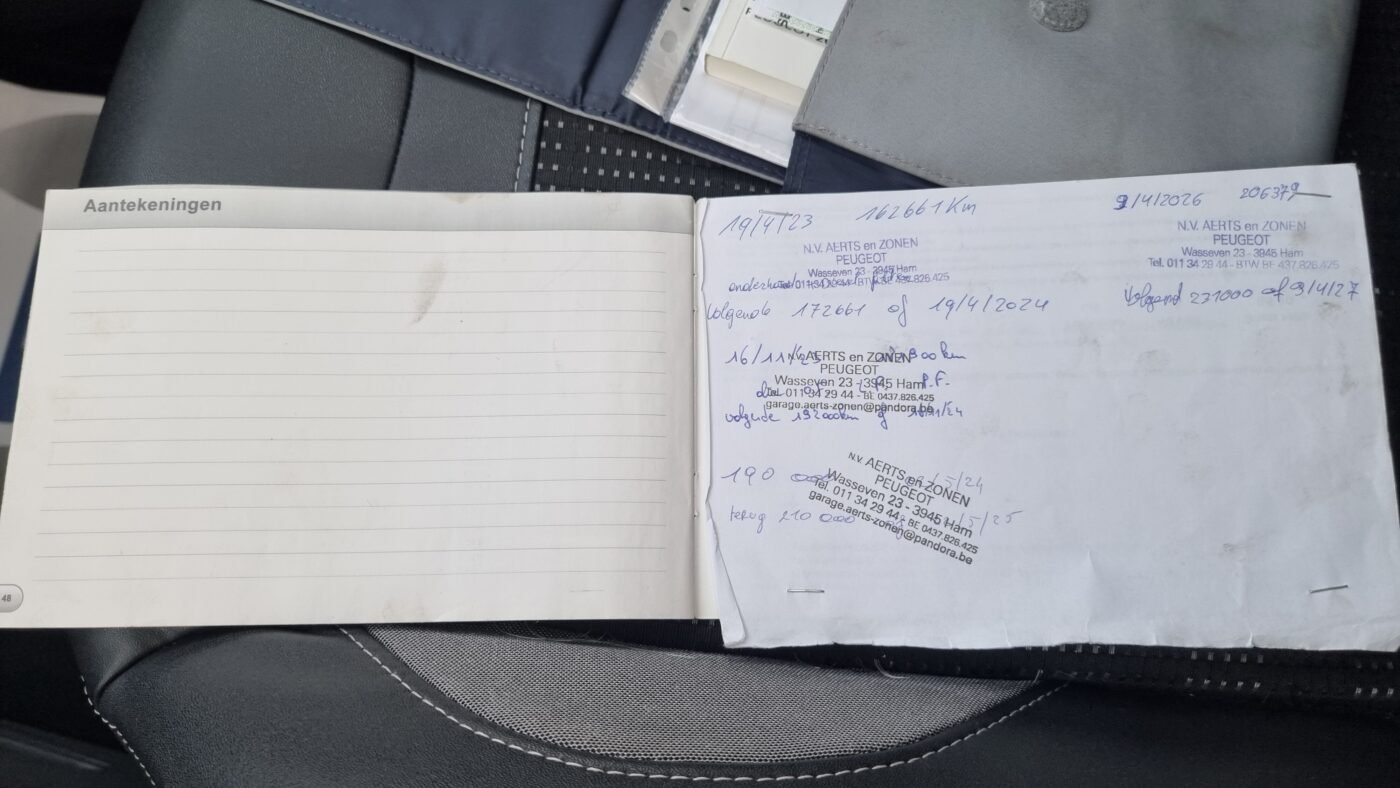 Aantekeningen
48
19/4/23 162661 Km
N.V. AERTS en ZONEN
PEUGEOT
Wasseven 23 - 3945 Ham
Tel. 011 34 29 44 - BTW BE 437.826.425
Volgende 172661 of 19/4/2024
16/11/23
N.V. AERTS en ZONEN
PEUGEOT
Wasseven 23 - 3945 Ham
Tel. 011 34 29 44 - BE 0437.826.425
garage.aerts-zonen@pandora.be
volgende 192000km of 16/11/24
190 000 /5/24
N.V. AERTS en ZONEN
PEUGEOT
Wasseven 23 - 3945 Ham
Tel. 011 34 29 44 - BE 0437.826.425
garage.aerts-zonen@pandora.be
terug 210 000 /5/25
9/4/2026 206379
N.V. AERTS en ZONEN
PEUGEOT
Wasseven 23 - 3945 Ham
Tel. 011 34 29 44 - BTW BE 437.826.425
Volgend 231000 of 9/4/27